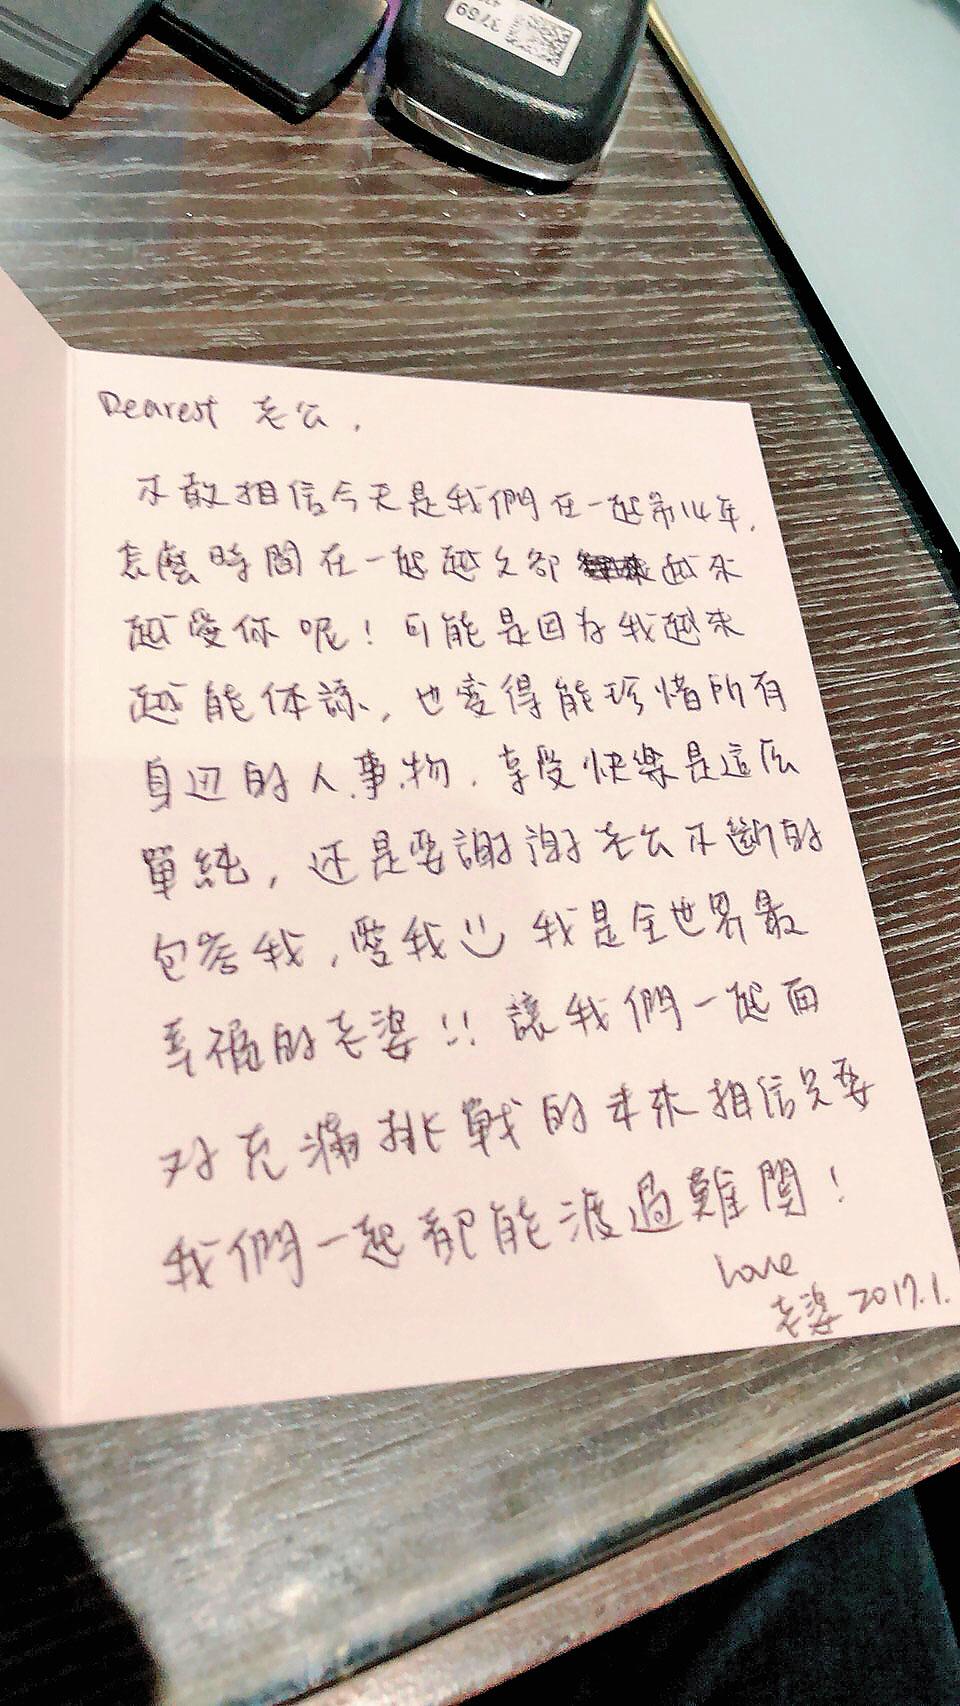 3769
Dearest 老公,
不敢相信今天是我們在一起第14年,
怎麼時間在一起越久卻 越來
越愛你呢!可能是因為我越來
越能体諒,也變得能珍惜所有
身边的人事物,享受快樂是這么
單純,还是要謝謝老公不斷的
包容我,愛我 我是全世界最
幸福的老婆!!讓我們一起面
对充滿挑戰的未來相信只要
我們一起都能渡過難關!
Love
老婆 2017.1.